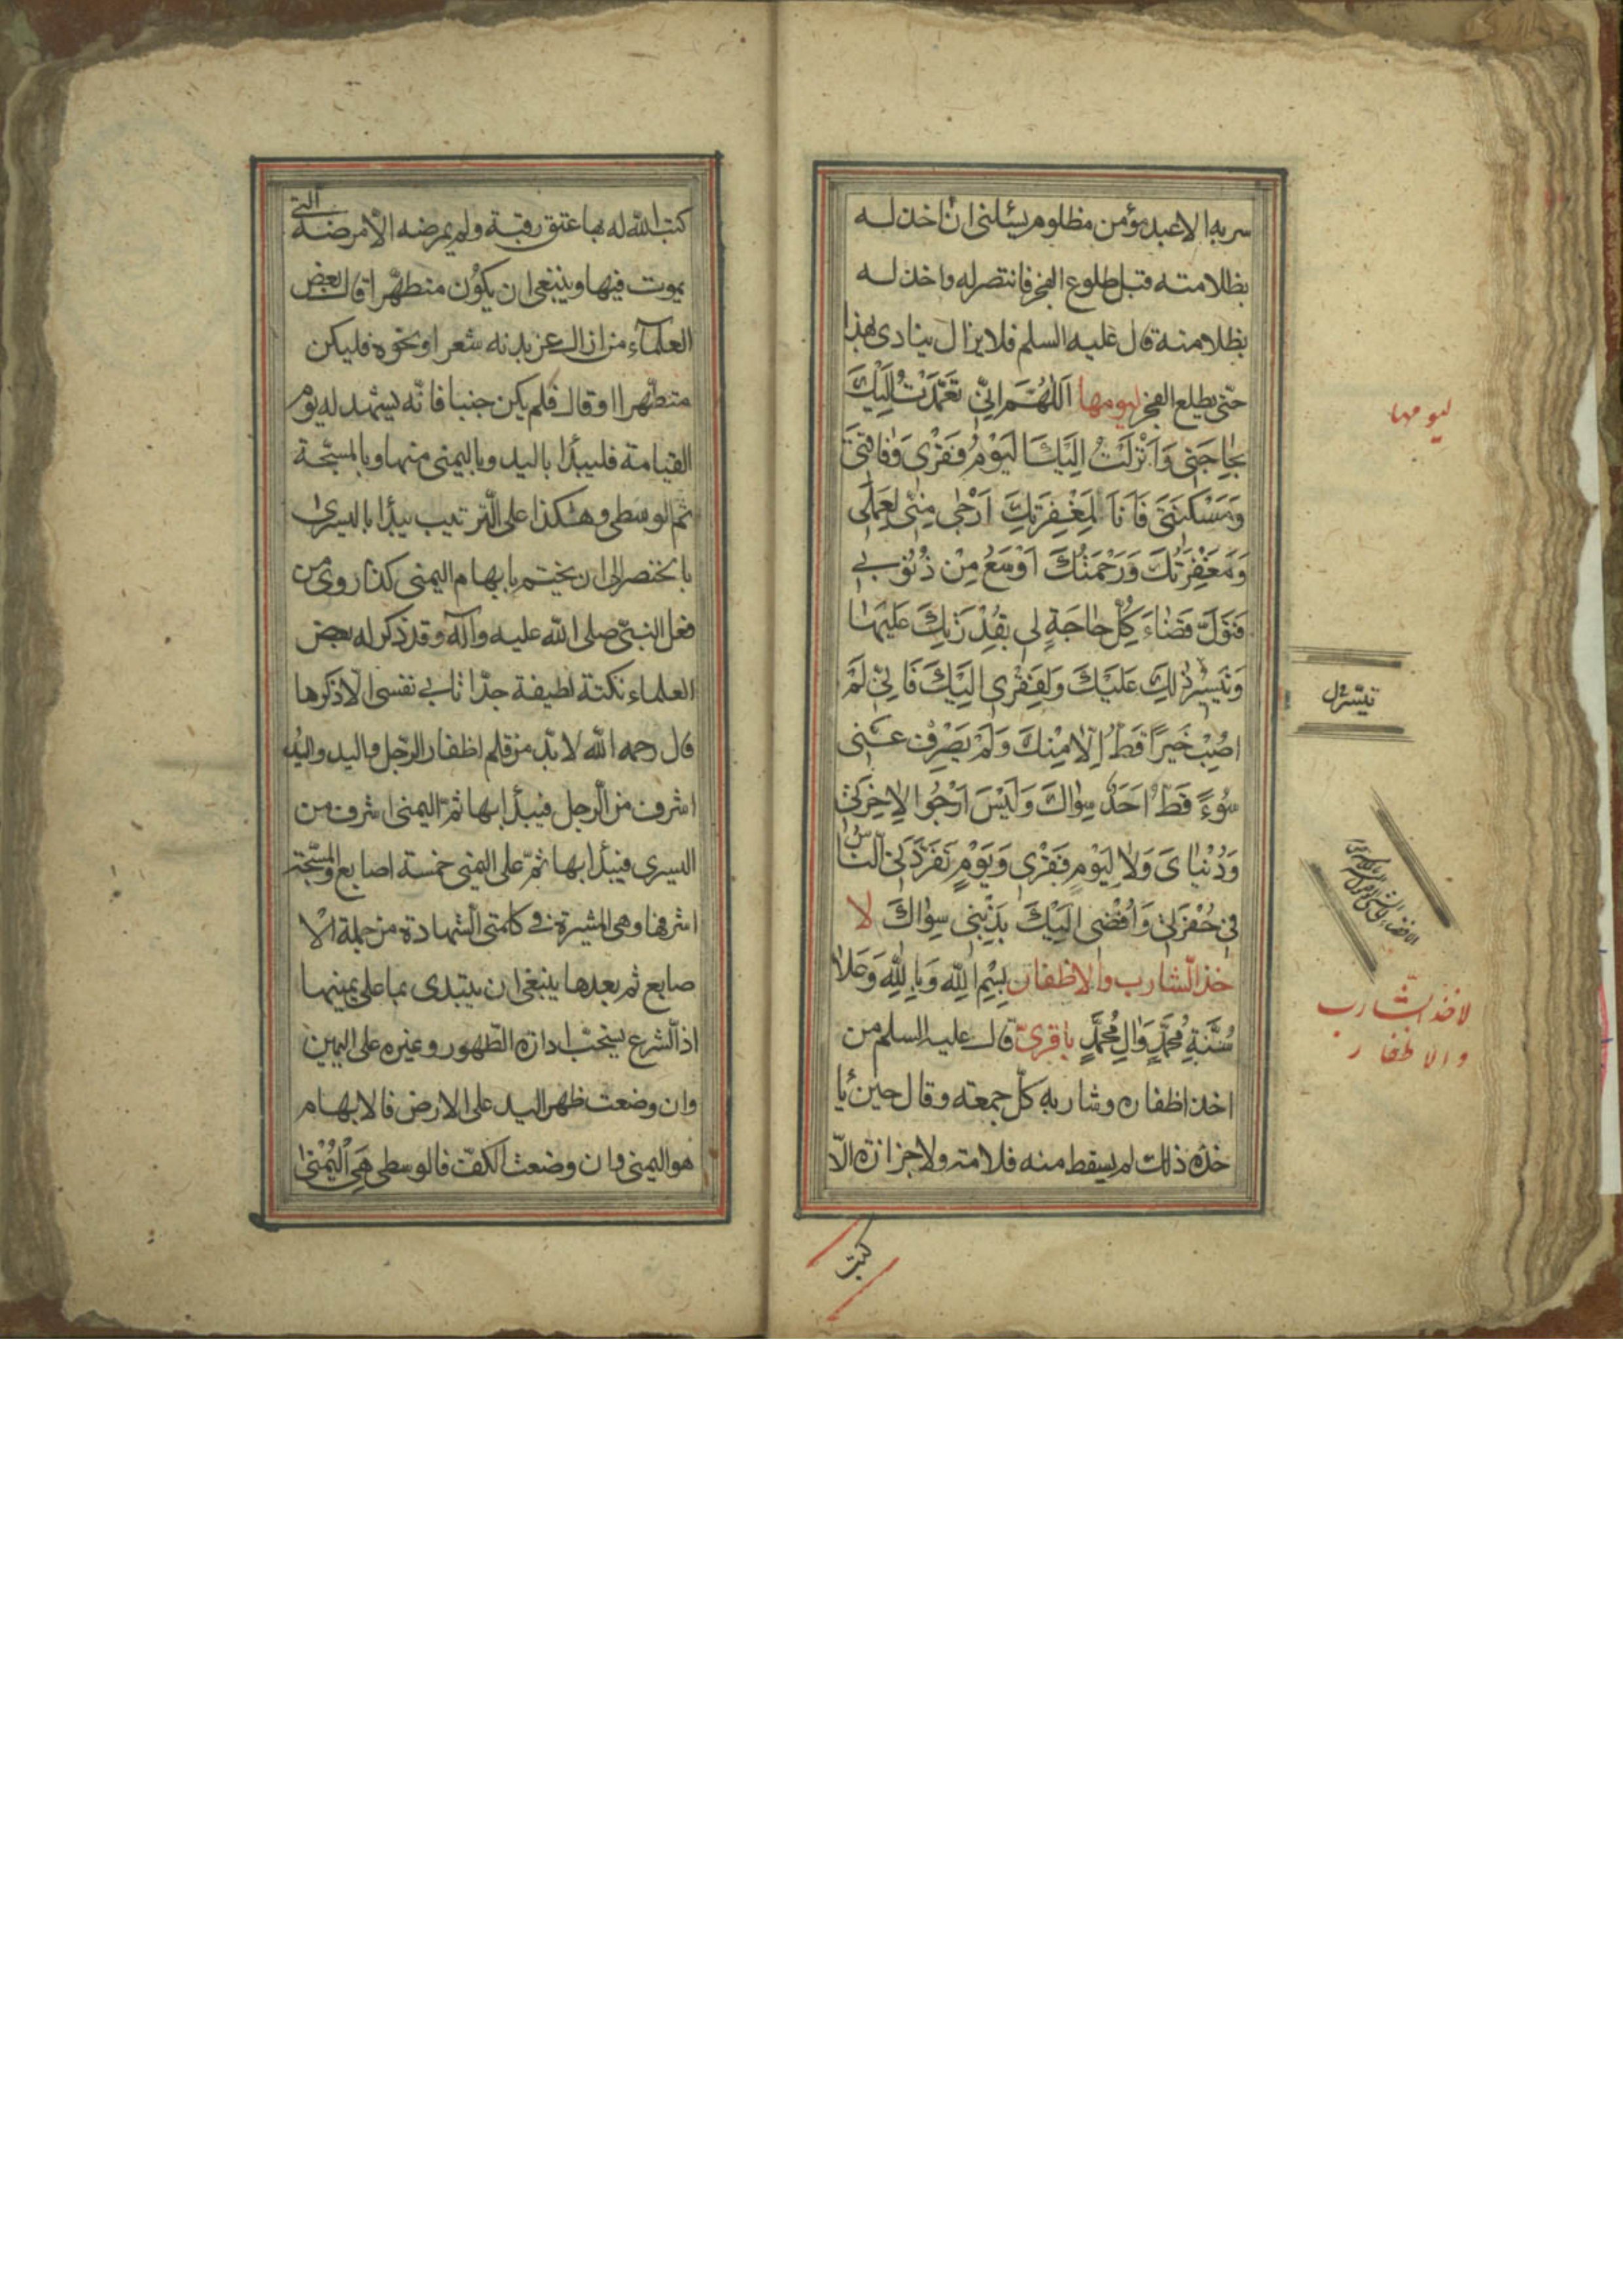 سربه الا عبد مؤمن مظلوم يسئلنى ان اخذ له
بظلامته قبل طلوع الفجر فانتصر له واخذ له
بظلامته قال عليه السلم فلا يزال ينادى بهذا
حتى يطلع الفجر ليومها اَللّهُمَّ اِنّى تَعَمَّدْتُ اِلَيْكَ
بِحاجَتى وَاَنْزَلْتُ اِلَيْكَ الْيَوْمَ فَقْرى وَفاقَتى
وَمَسْكَنَتى فَاَنَا لِمَغْفِرَتِكَ اَرْجى مِنّى لِعَمَلى
وَمَغْفِرَتُكَ وَرَحْمَتُكَ اَوْسَعُ مِنْ ذُنُوبى
فَتَوَلَّ قَضاءَ كُلِّ حاجَةٍ لى بِقُدْرَتِكَ عَلَيْها
وَتَيْسِيْرِ ذلِكَ عَلَيْكَ وَلِفَقْرى اِلَيْكَ فَاِنّى لَمْ
اُصِبْ خَيْراً قَطُّ اِلّا مِنْكَ وَلَمْ يَصْرِفْ عَنّى
سُوءً قَطُّ اَحَدٌ سِواكَ وَلَيْسَ اَرْجُوا لِاخِرَتى
وَدُنْياىَ وَلا لِيَوْمِ فَقْرى وَيَوْمِ تَفَرَّدَنِى النّاسُ
فى حُفْرَتى وَاُفْضى اِلَيْكَ بِذَنْبى سِواكَ لا
خذ الشارب والاظفار بِسْمِ اللهِ وَبِاللهِ وَعَلى
سُنَّةِ مُحَمَّدٍ وَالِ مُحَمَّدٍ باقرىّ قال عليه السلم من
اخذ اظفاره وشاربه كلّ جمعته وقال حين يا
خذه ذلك لم يسقط منه قلامته ولا جزازة الّا
ليومها
لاخذ الشارب
والاظفار
كتب
كتب الله له بها عتق رقبة ولم يمرضه الّا مرضة التى
يموت فيها وينبغى ان يكون متطهّرا قال بعض
العلمآء من ازال عن بدنه شعر او نحوه فليكن
متطهّرا او قال فلم يكن جنبا فانّه يشهد له يوم
القيامة فليبدأ باليد وباليمنى منها وبالمسبّحة
ثم الوسطى وهكذا على الترتيب يبدأ باليسرى
بالخنصر الى ان يختم بابهام اليمنى كذا روى من
فعل النبىّ صلى الله عليه وآله وقد ذكر له بعض
العلماء نكتة لطيفة جدّا تابى نفسى الّا ذكرها
قال رحمه الله لا بدّ من قلم اظفار الرّجل واليد واليد
اشرف من الرجل فيبدأ بها ثمّ اليمنى اشرف من
اليسرى فيبدأ بها ثمّ على اليمنى خمسة اصابع والمسبّحة
اشرفها وهى المشيرة فى كلمتى الشهادة من جملة الا
صابع ثم بعدها ينبغى ان يبتدى بما على يمينها
اذ الشرع يستحبّ ادارة الطّهور وغيره على اليمين
وان وضعت ظهر اليد على الارض فالابهام
هو اليمنى وان وضعت الكفّ فالوسطى هى اليُمْنى